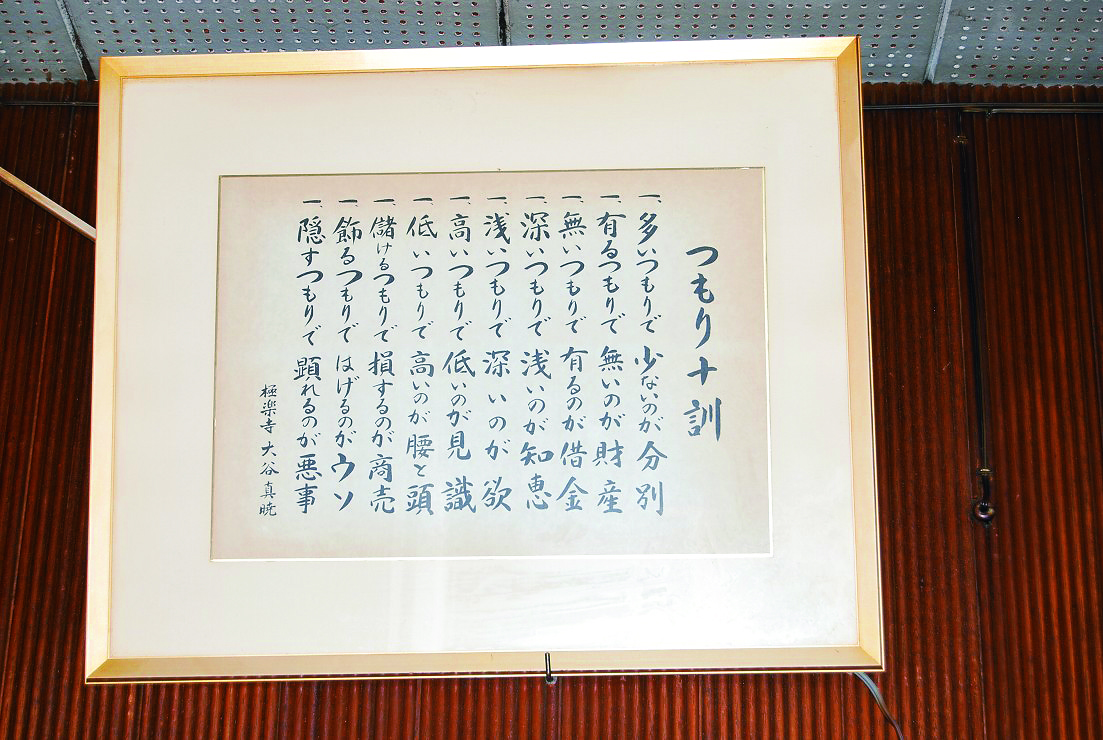 つもり十訓
一、多いつもりで 少ないのが 分別
一、有るつもりで 無いのが 財産
一、無いつもりで 有るのが 借金
一、深いつもりで 浅いのが 知恵
一、浅いつもりで 深いのが 欲
一、高いつもりで 低いのが 見識
一、低いつもりで 高いのが 腰と頭
一、儲けるつもりで 損するのが 商売
一、飾るつもりで はげるのが ウソ
一、隠すつもりで 顕れるのが 悪事
極楽寺 大谷真暁